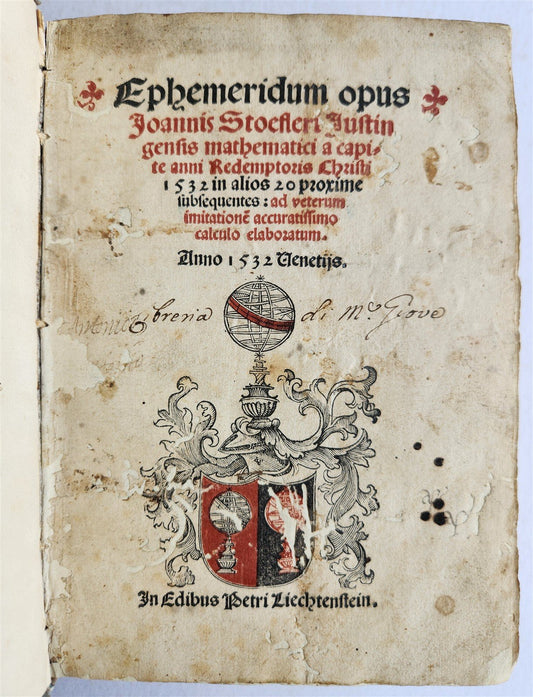 Ephemeridum opus
Joannis Stoefleri Justin
gensis mathematici a capi-
te anni Redemptoris Christi
1532 in alios 20 proxime
subsequentes: ad veterum
imitationē accuratissimo
calculo elaboratum.
Anno 1532 Venetijs.
di Mr Giove
In Edibus Petri Liechtenstein.